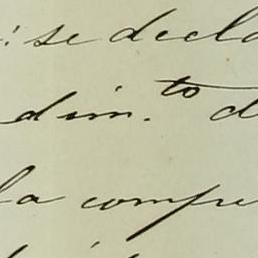 : se decla
dim.to d
la compe